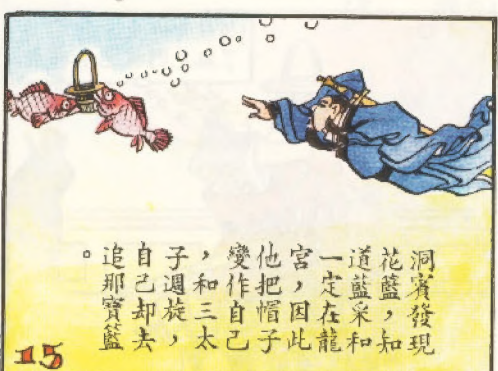 洞賓發現
花籃，知
道藍采和
一定在龍
宮，因此
他把帽子
變作自己
，和三太
子週旋，
自己却去
追那寶籃
。
15